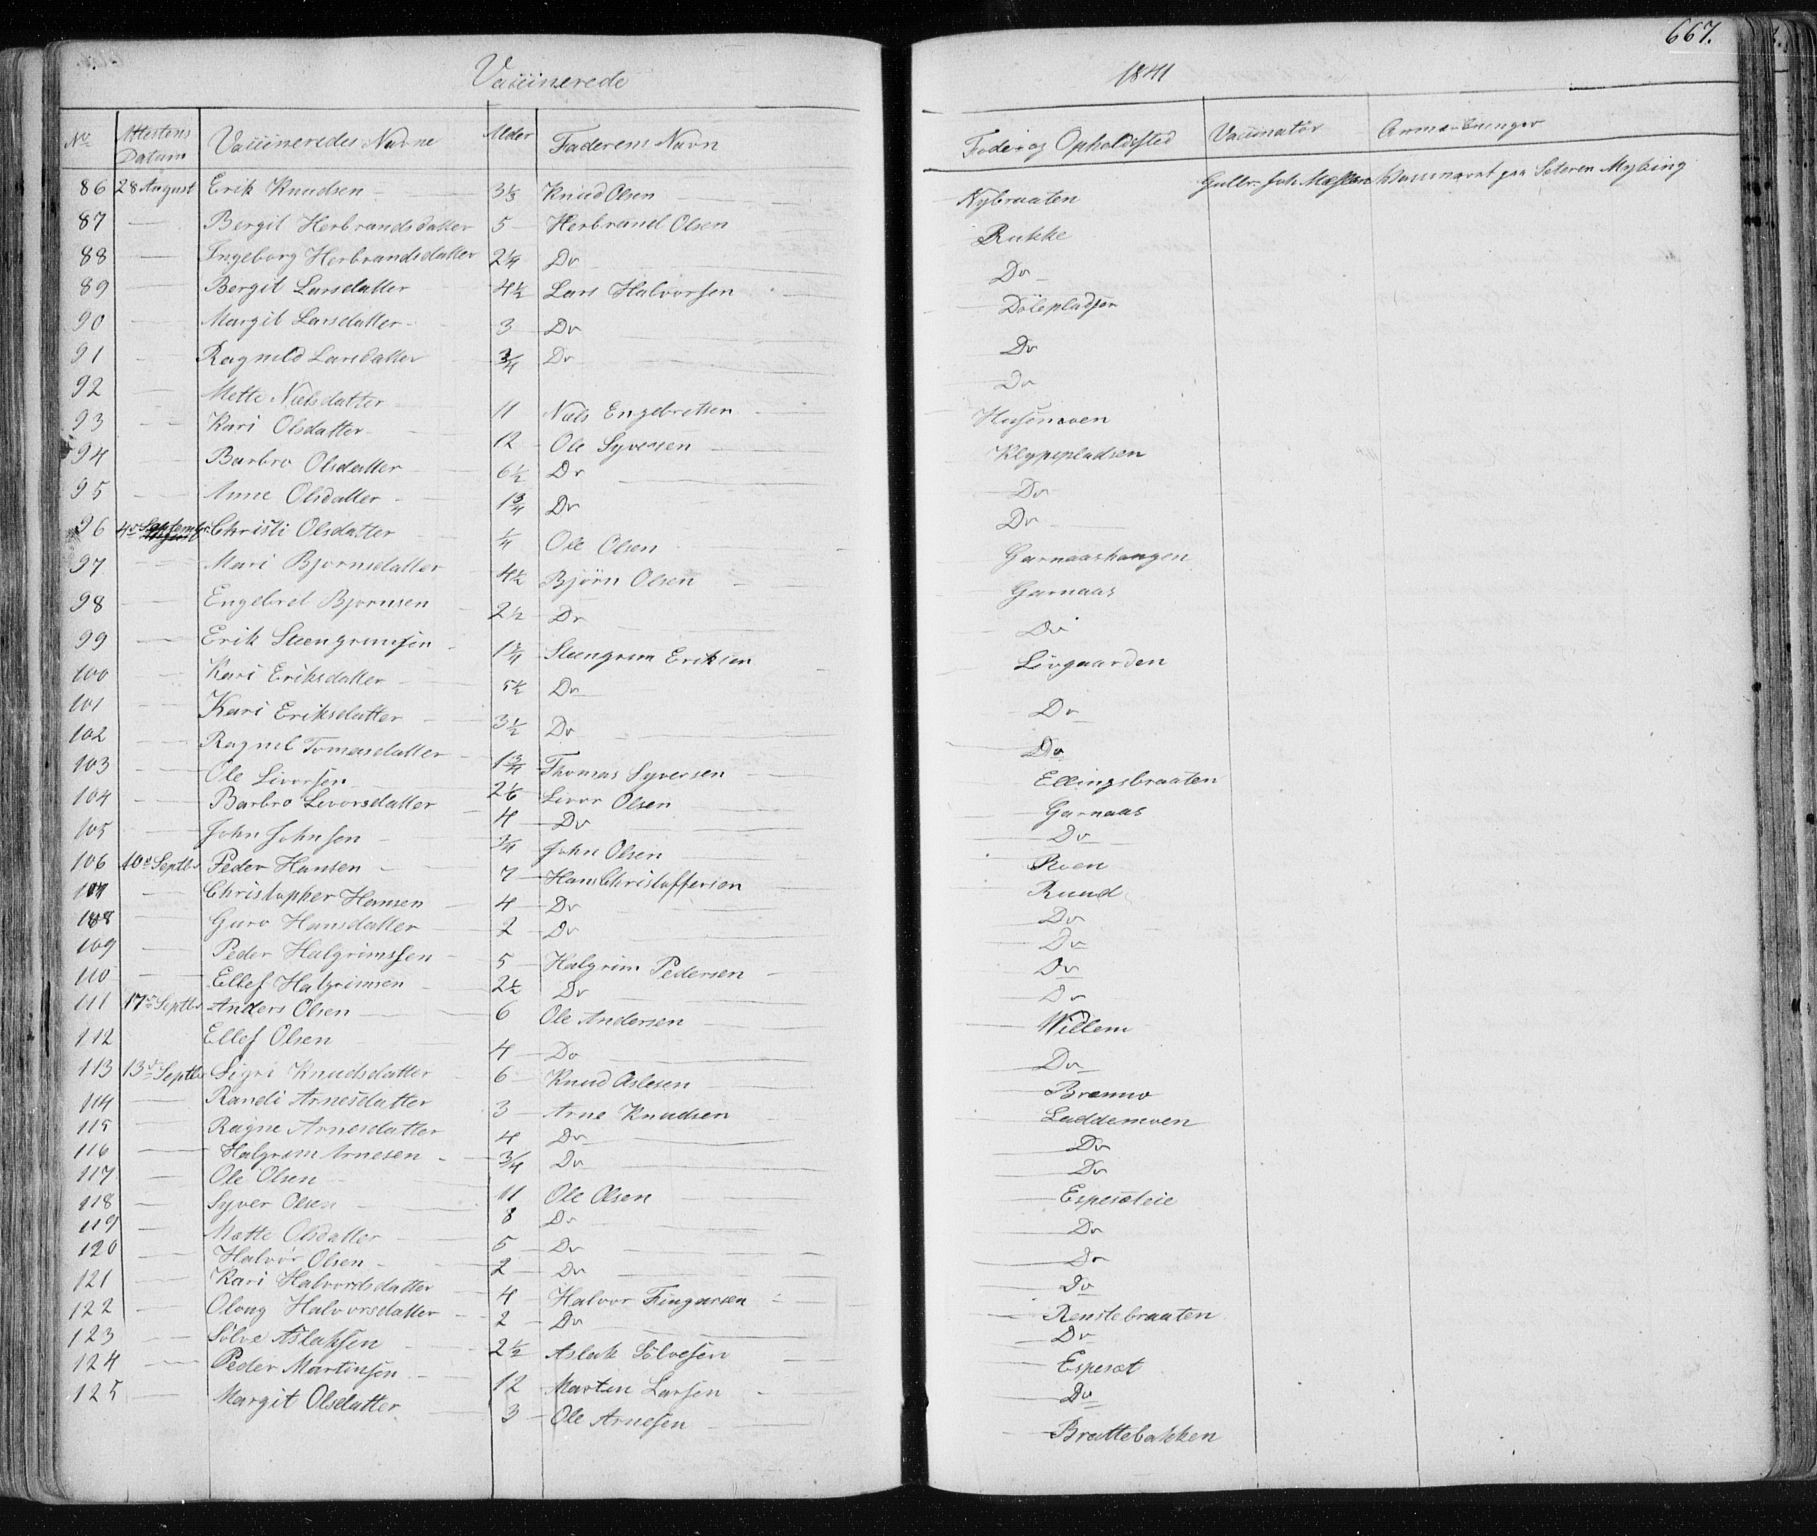 667.
Vaccinerede 1841
No Attestens Datum Vaccineredes Navne Alder Faderens Navn Føde og Opholdssted Vaccinator Anmærkninger
86 28 August Erik Knudsen 3 1/3 Knud Olsen Nybraaten
87 — Bergit Herbrandsdatter 5 Herbrand Olsen Rukke
88 — Ingeborg Herbrandsdatter 2 1/4 Do Do
89 — Bergit Larsdatter 4 1/2 Lars Halvorsen Dölepladsen
90 — Margit Larsdatter 3 Do Do
91 — Ragnild Larsdatter 3/4 Do Do
92 — Mette Nielsdatter 11 Niels Engebretsen
93 — Kari Olsdatter 12 Ole Syversen Klypepladsen
94 — Barbro Olsdatter 6 1/2 Do Do
95 — Anne Olsdatter 1 3/4 Do Do
96 4de September Christi Olsdatter 1/4 Ole Olsen Garnaashaugen
97 — Mari Bjornsdatter 4 1/2 Bjørn Olsen Garnaas
98 — Engebret Bjornsen 2 1/2 Do Do
99 — Erik Steengrimsen 1 3/4 Steengrim Eriksen Livgaarden
100 — Kari Eriksdatter 5 1/2 Do Do
101 — Kari Eriksdatter 3 1/2 Do Do
102 — Ragnil Tomasdatter 1 3/4 Thomas Syversen Ellingsbraaten
103 — Ole Livorsen 2 1/6 Livor Olsen Garnaas
104 — Barbro Livorsdatter 4 Do Do
105 — John Johnsen 3/4 John Olsen Roen
106 10de Septbr Peder Hansen 7 Hans Christoffersen Ruud
107 — Christopher Hansen 4 Do Do
108 — Guro Hansdatter 2 Do Do
109 — Peder Halgrimssen 5 Halgrim Pedersen Do
110 — Ellef Halgrimsen 2 1/2 Do Do
111 17de Septbr Anders Olsen 6 Ole Andersen Willem
112 Ellef Olsen 4 Do Do
113 13de Septbr Sigri Knudsdatter 6 Knud Aslesen Bremmo
114 — Randi Arnesdatter 3 Arne Knudsen Laddemoen
115 — Ragne Arnesdatter 4 Do Do
116 — Halgrim Arnesen 3/4 Do Do
117 — Ole Olsen 11 Ole Olsen Espesæteie
118 — Syver Olsen 8 Do Do
119 — Mette Olsdatter 5 Do Do
120 — Halvor Olsen 2 Do Do
121 — Kari Halvordsdatter 4 Halvor Fingarsen Renstebraaten
122 — Oloug Halvorsdatter 2 Do Do
123 — Sölve Aslaksen 2 1/2 Aslak Sölvesen Espesæt
124 — Peder Martinsen 12 Morten Larsen Do
125 — Margit Olsdatter 3 Ole Arnesen Brattebakken